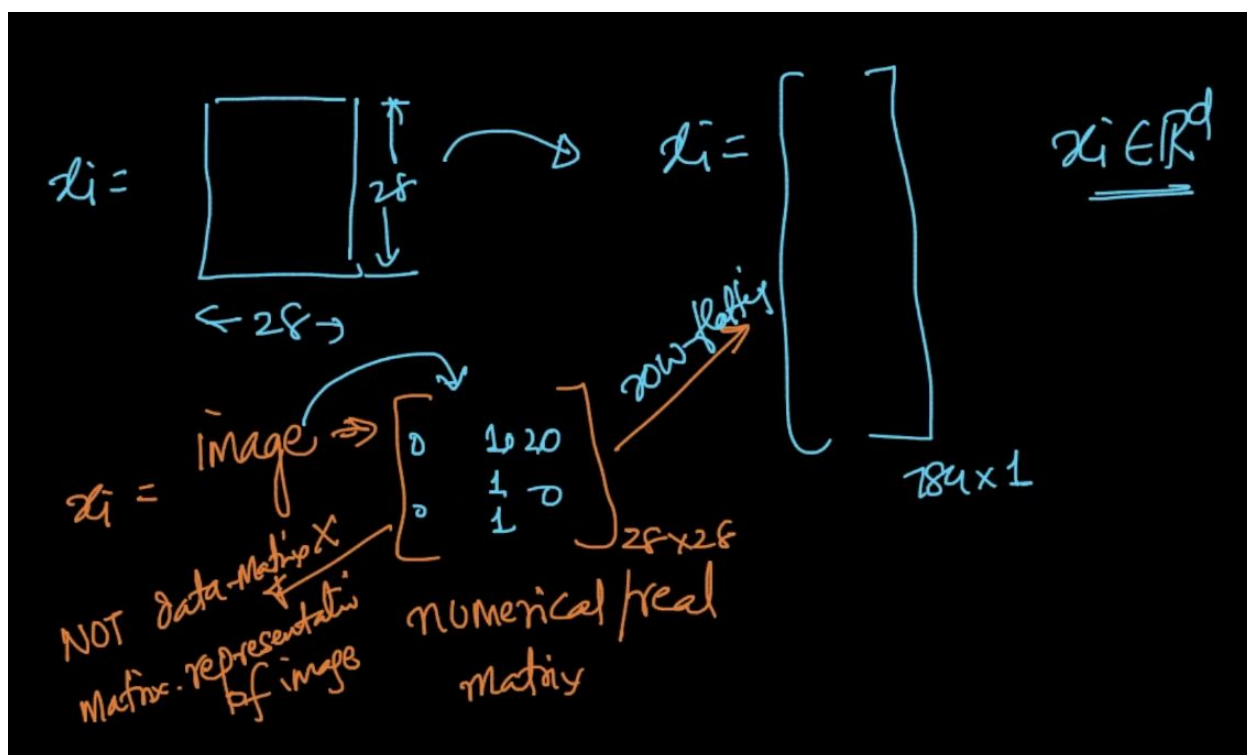 xi =
28
← 28 →
xi =
xi ∈ R^d
row-flatting
784 x 1
xi = image ⇒
0 1 0 20
1 0
0 1
28 x 28
NOT data-Matrix X
Matrix-representatio
of image
numerical/real
matrix